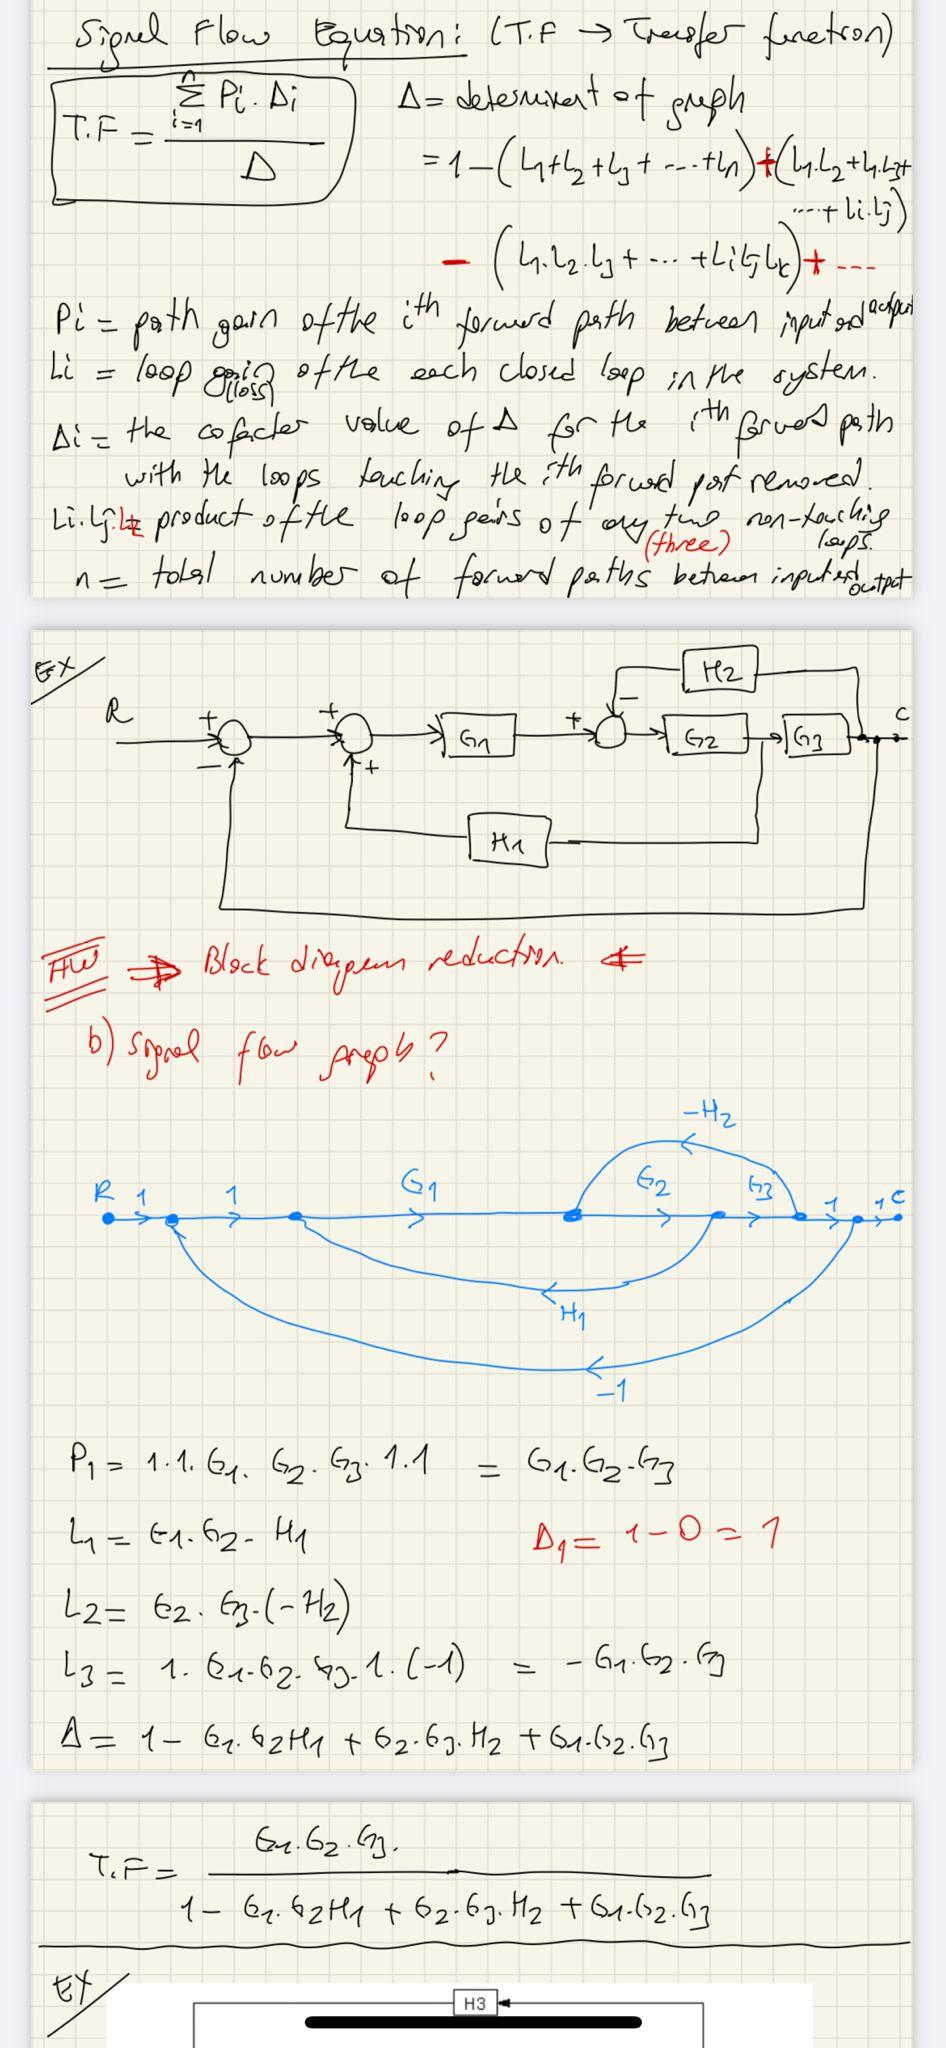 Signal Flow Equation: (T.F → Transfer function)
T.F = n Σ i=1 Pi. Δi / Δ
Δ = determinent of graph
= 1 - (L1+L2+L3+ ....+Ln) + (L1.L2+L1.L3+
....+ Li.Lj)
- (L1.L2.L3 + ... +LiLjLk) + ---
Pi = path gain of the ith forward path between input and output
Li = loop gain of the each closed loop in the system.
(loss)
Δi = the cofacter value of Δ for the ith forward path
with the loops touching the ith forward part removed.
Li.Lj.Lz = product of the loop gains of any two non-touching
(three) loops.
n = total number of forward paths between input and output
EX
H2
R + - + + G1 + - G2 G3 C
H1
HW ⇒ Block diagram reduction. ⇐
b) Signal flow graph?
-H2
R 1 1 G1 G2 G3 1 1 C
H1
-1
P1 = 1.1. G1. G2. G3. 1.1 = G1.G2.G3
L1 = G1.G2. H1 Δ1 = 1 - 0 = 1
L2 = G2. G3.(-H2)
L3 = 1. G1.G2. G3. 1. (-1) = - G1.G2.G3
Δ = 1 - G1.G2H1 + G2.G3.H2 + G1.G2.G3
T.F = G1.G2.G3. / 1 - G1.G2H1 + G2.G3.H2 + G1.G2.G3
EX
H3